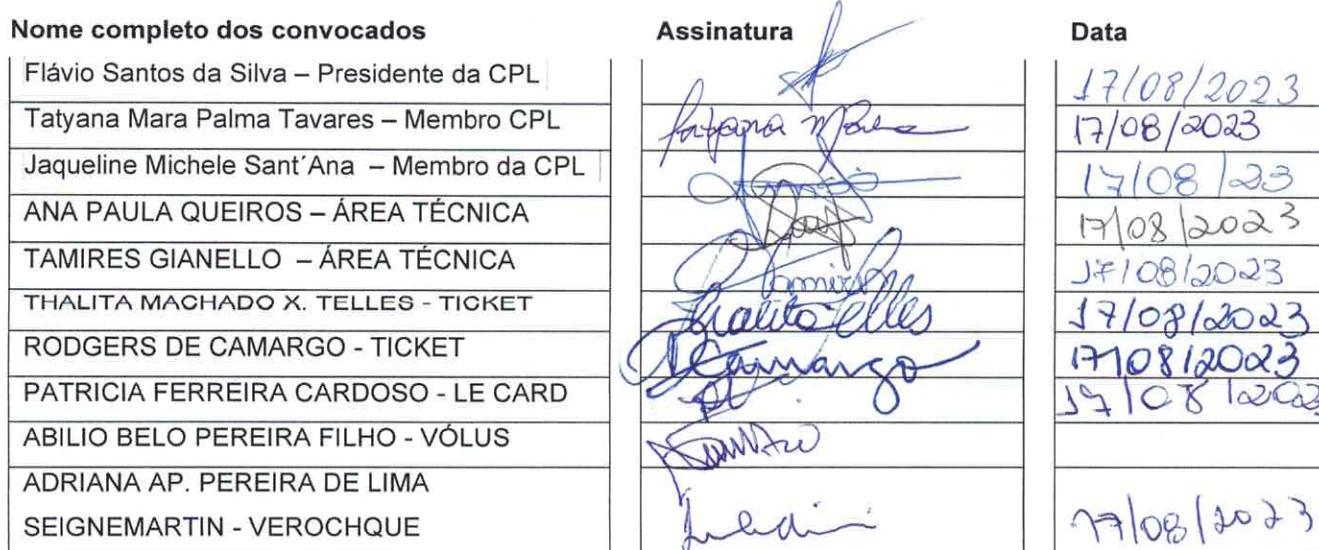 Nome completo dos convocados Assinatura Data
Flávio Santos da Silva – Presidente da CPL 17/08/2023
Tatyana Mara Palma Tavares – Membro CPL Tatyana Mara 17/08/2023
Jaqueline Michele Sant´Ana – Membro da CPL 17/08/23
ANA PAULA QUEIROS – ÁREA TÉCNICA 17/08/2023
TAMIRES GIANELLO – ÁREA TÉCNICA Tamires 17/08/2023
THALITA MACHADO X. TELLES - TICKET Thalita Telles 17/08/2023
RODGERS DE CAMARGO - TICKET RCamargo 17/08/2023
PATRICIA FERREIRA CARDOSO - LE CARD 17/08/202
ABILIO BELO PEREIRA FILHO - VÓLUS
ADRIANA AP. PEREIRA DE LIMA
SEIGNEMARTIN - VEROCHQUE 17/08/2023